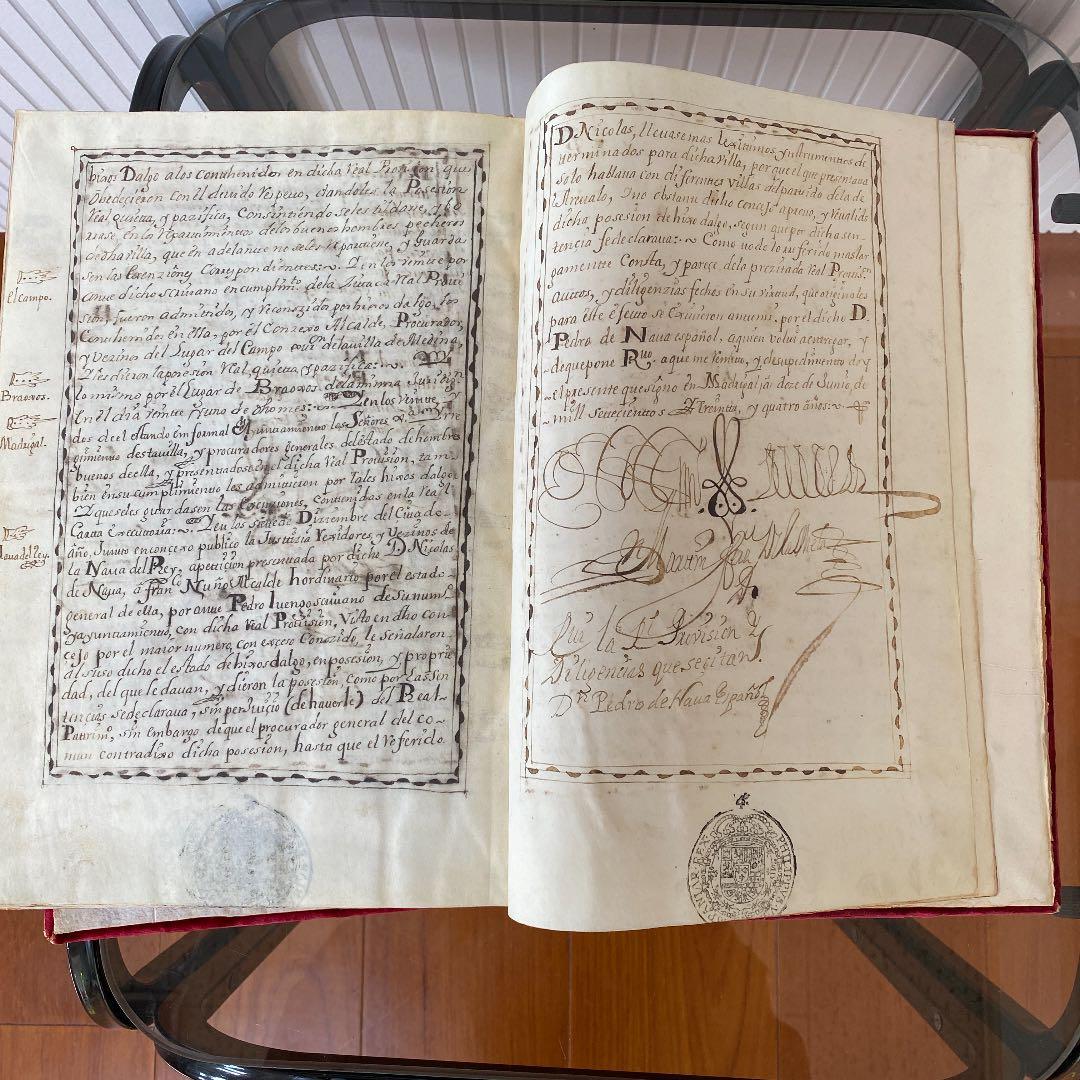 El campo.
Braovos.
Madrigal.
Naua del Rey.
hixos Dalgo a los Conthenidos en dicha Real Provision, que
Obedecieron con el devido Respecto, dandoles la Posesión
Real quieta, y pazifica, Consintiendo seles tildare, y bo
rrase, en los Repartimientos de los buenos hombres pecheros
de dha villa, que en adelante no seles repartiese, y Guarda
sen las exenziones Correspondientes: En los veinte por
ante dicho scrivano en cumplimto de la
sion, fueron admitidos, y reconozidos por hixos dalgo, los
Conthenidos en ella, por el Conzexo Alcalde, Procurador,
y Vezinos del Lugar del Campo de la villa de Medina,
y les dieron la posesión Real quieta y pazifica:
lo mismo por el Lugar de Braovos de la misma
En el dia veinte y uno de dho mes: en los veinte y
dos de el estando en formal Ayuntamiento los Señores
gimiento desta villa, y procuradores generales del estado de hombres
buenos de ella, y presentadose en el dicha Real Provision, tam
bien en su cumplimiento les admitieron por tales hixos dalgo
y que seles guardasen las Exempciones, contenidas en la real
Carta executoria: En los siete de Diziembre del Citado
año, Junto en conzexo publico la Justizia Rexidores, y Vezinos de
la Naua del Rey, a peticion presentada por dicho D Nicolas
de Naua, a franco Nuño Alcalde hordinario por el estado
general de ella, por ante Pedro luengo scrivano de su num
y ayuntamiento, con dicha Real Provision, Visto en dho con
cejo por el maior numero, con exceso Conozido, le señalaron
al suso dicho el estado de hixos dalgo, en posesion, y proprie
dad, del que le dauan, y dieron la posesion, como por las Sen
tencias se declaraua, sin perjuicio (de hauerle) del Real
Patrimo, sin embargo de que el procurador general del co-
mun contradixo dicha posesion, hasta que el Referido
D Nicolas, lleuase mas lexitimos ynstrumentos de
terminados para dicha Villa, por que el que presentaua
solo hablaua con diferentes villas del partido de la de
Areualo, Ino obstante dicho concejo aprovo, y Reualido
dicha posesion de hixo dalgo, segun que por dicha sen
tencia se declaraua: Como todo lo referido mas lar
gamente Consta, y pareze de la prezitada Real Provision
autos, y diligenzias fechas en su virtud, que originales
para este efecto se exiuieron ante mi, por el dicho D.
Pedro de Naua español, a quien volui a entregar, y
de que pone Rvo. a que me remito, y de su pedimento doy
el presente que signo en Madrigal, a doze de Junio, de
mill Setecientos y treinta, y quatro años:
la Rl Provision y
Diligencias que se çitan.
Dn Pedro de Naua Español
PHILIPPVS